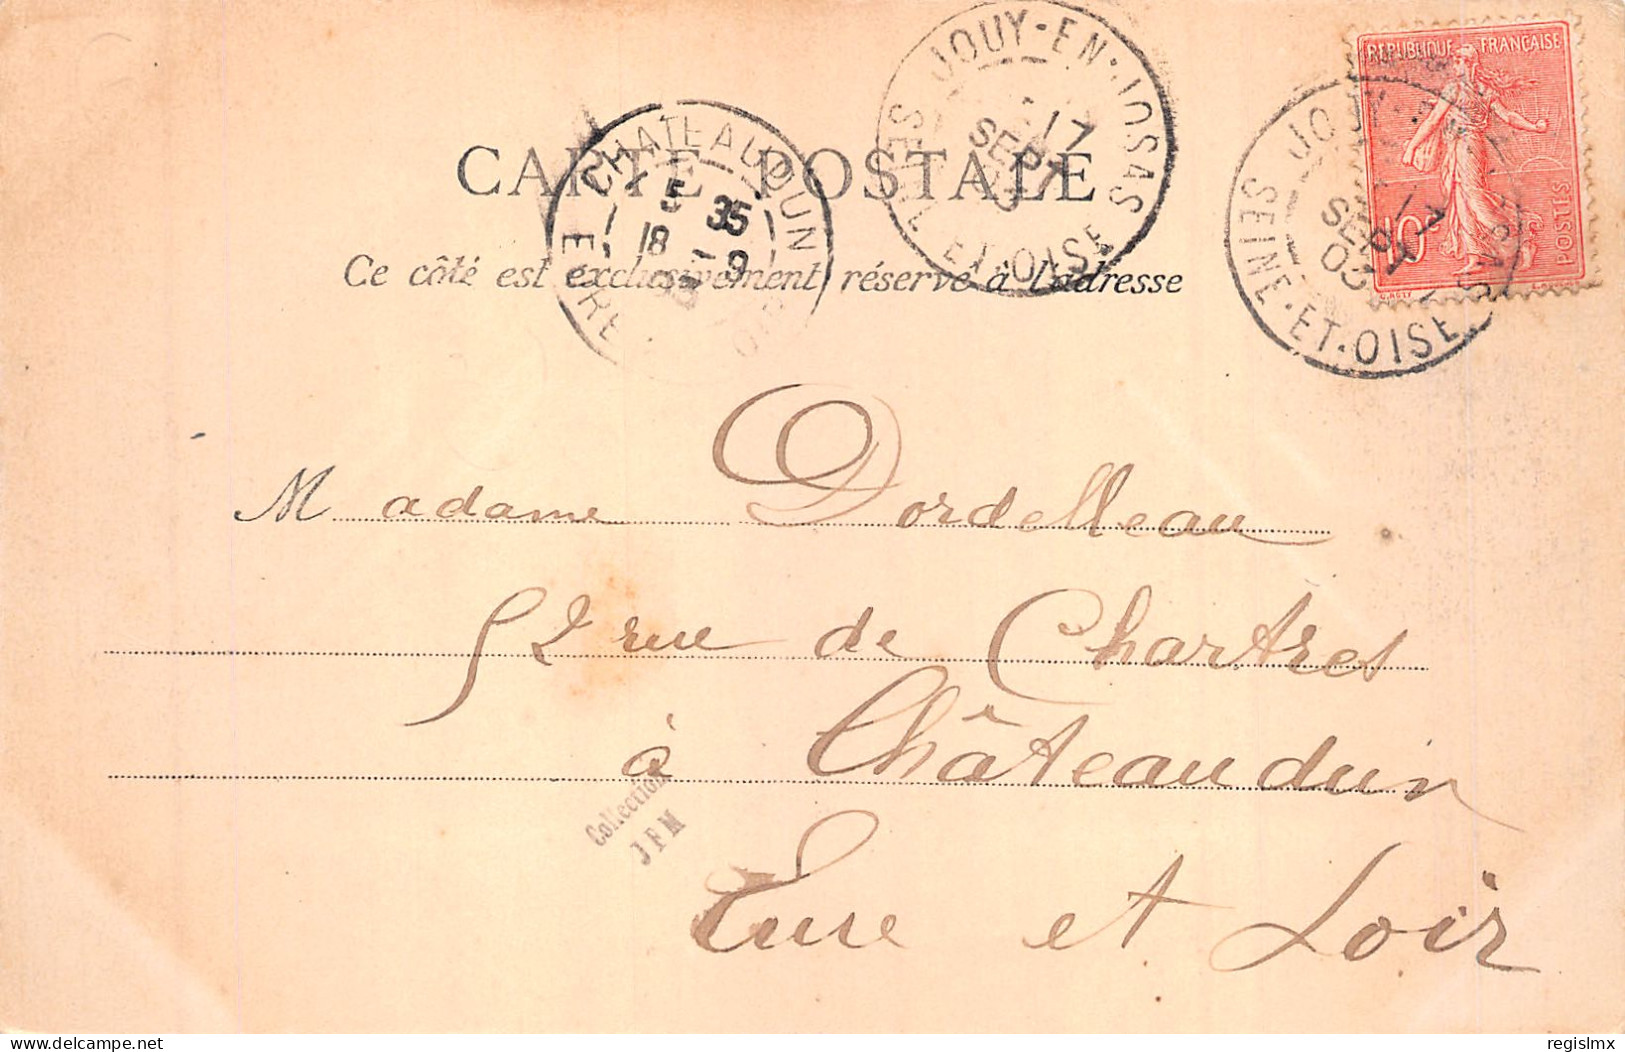 JOUY-EN-JOSAS
17
SEPT
03
SEINE-ET-OISE
REPUBLIQUE FRANÇAISE
10c
POSTES
JOUY-EN-JOSAS
17
SEPT
03
SEINE-ET-OISE
CHATEAUDUN
5 35
18 -9
03
EURE
CARTE POSTALE
Ce côté est exclusivement réservé à l'adresse
Madame Dordelleau
52 rue de Chartres
à Châteaudun
Eure et Loir
Collection
JFM
delcampe.net
regislmx